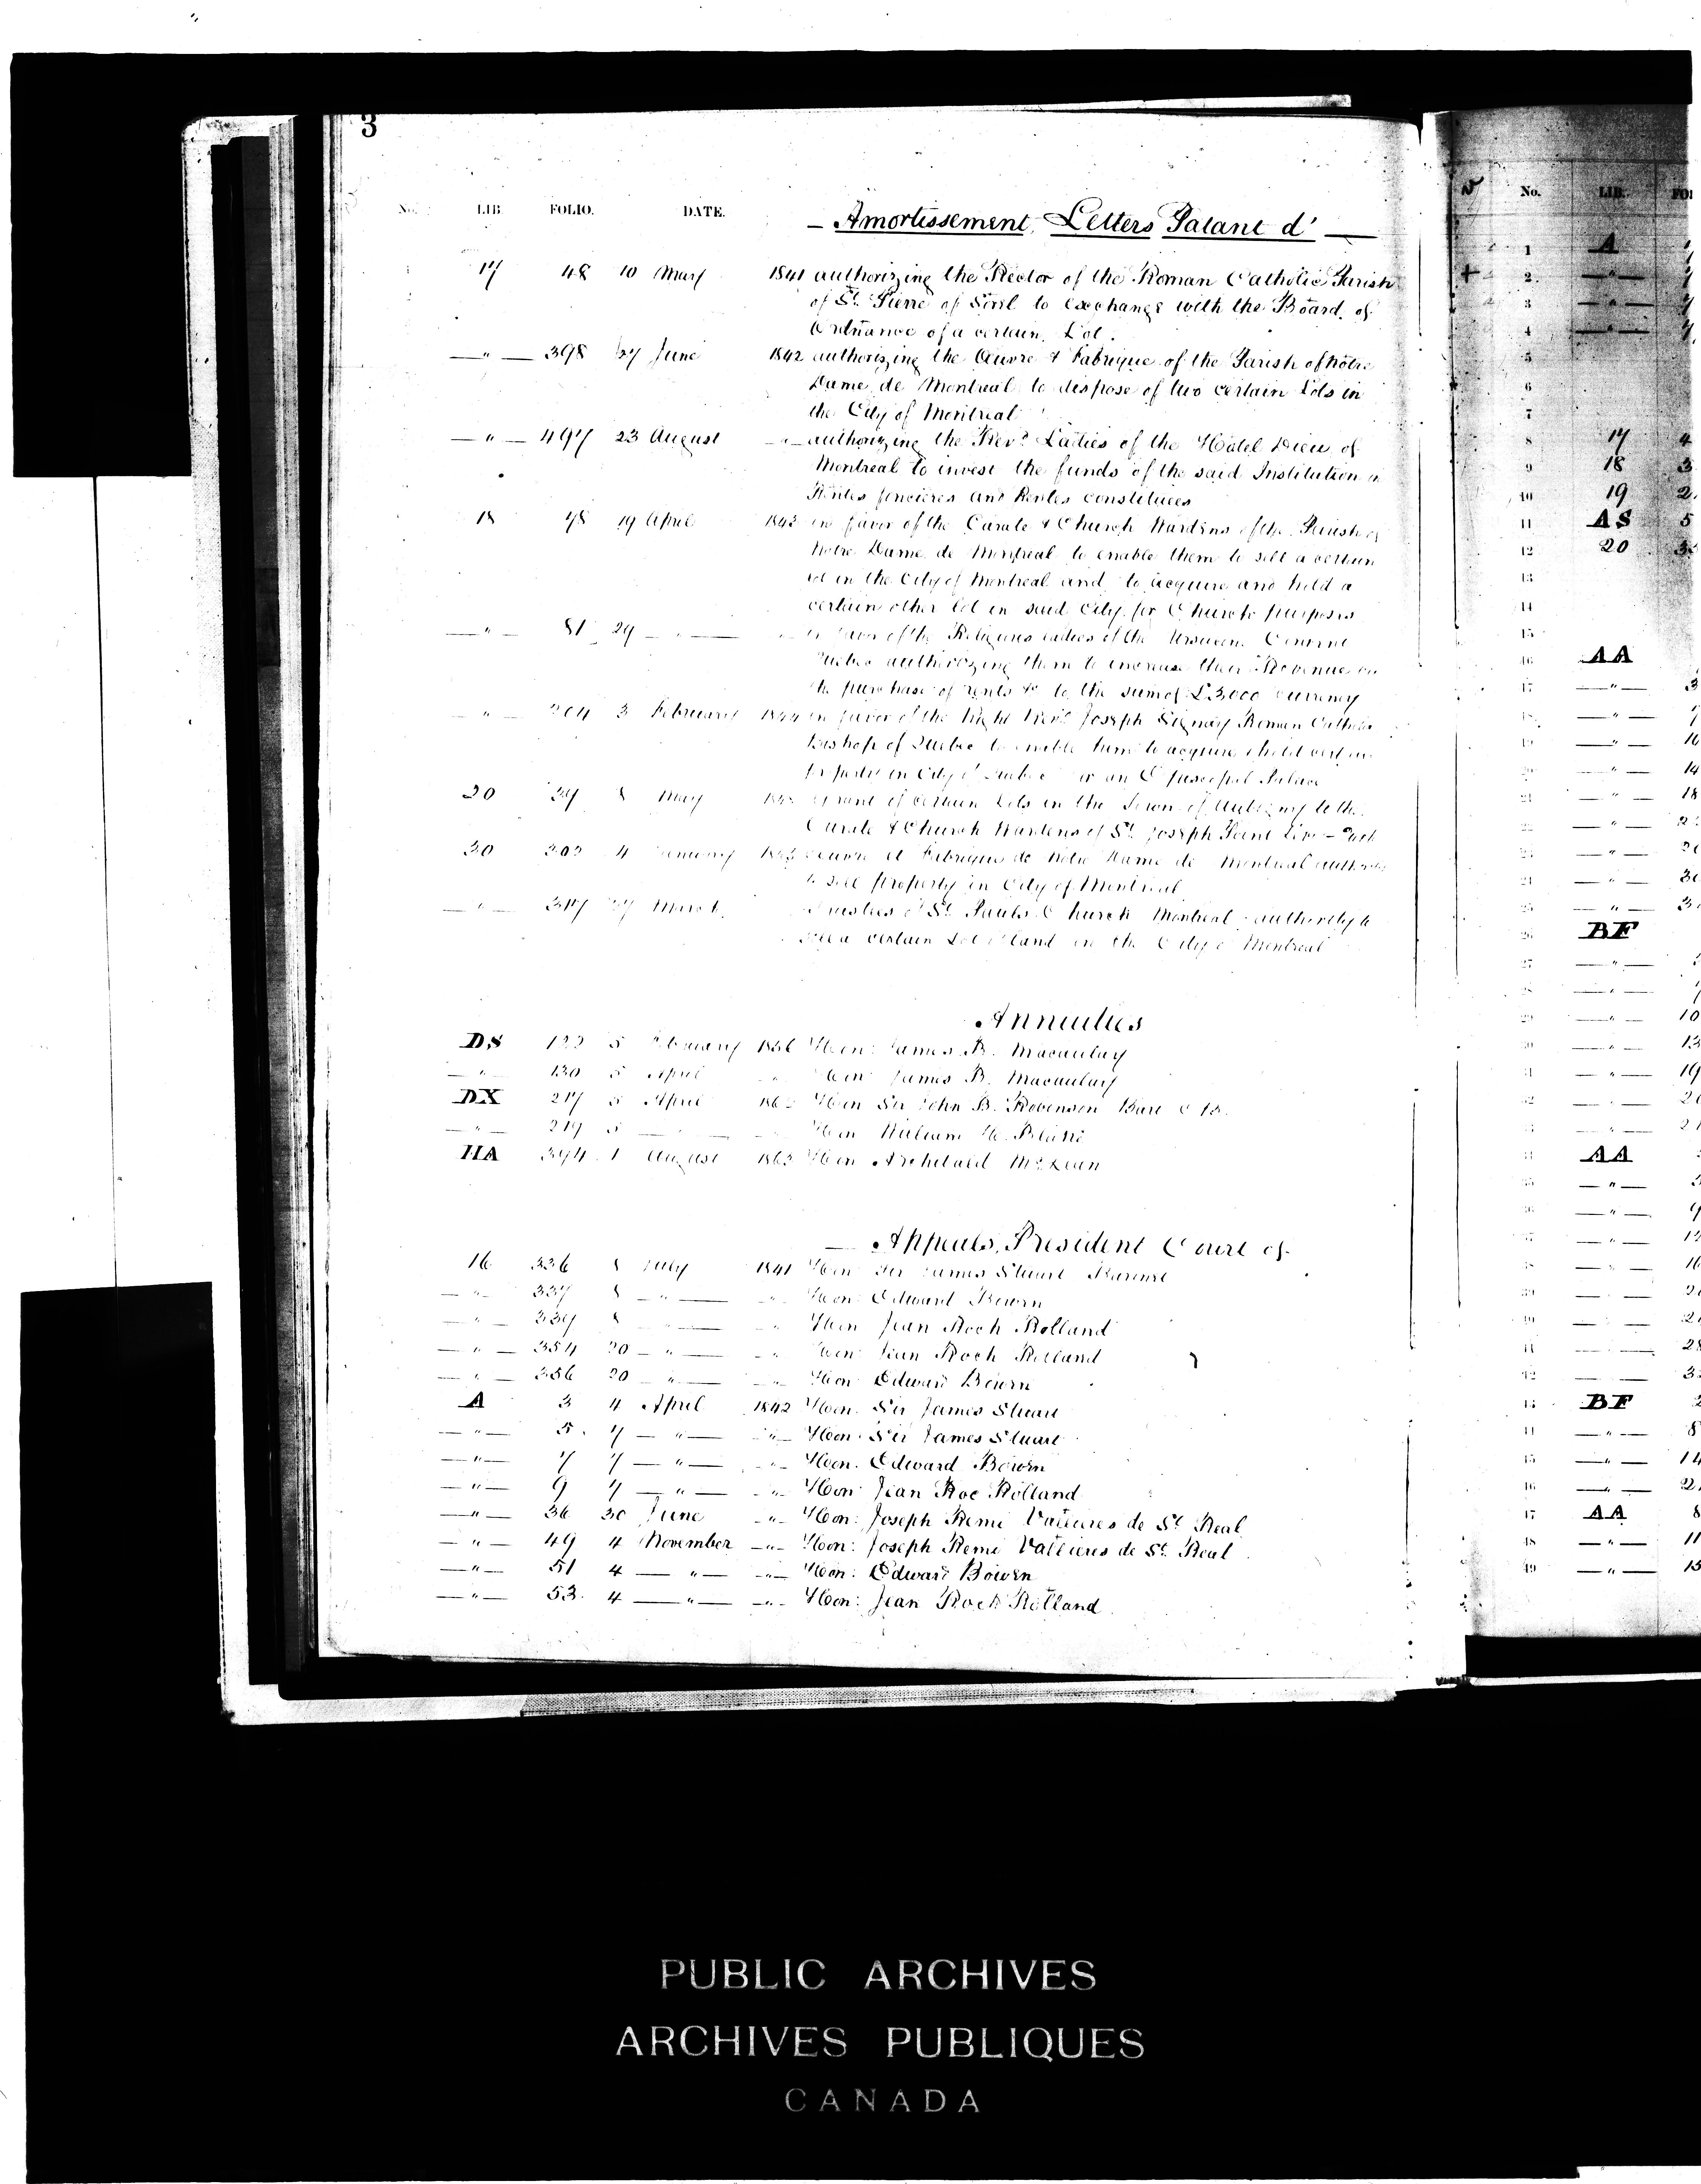 3
No. LIB. FOLIO. DATE.
— Amortissement, Letters Patant d' —
17 48 10 May 1841 authorizing the Rector of the Roman Catholic Parish
of St. Pierre of Sorel to exchange with the Board of
Ordnance of a certain Lot.
— " — 398 27 June 1842 authorizing the Œuvre & Fabrique of the Parish of Notre
Dame de Montreal to dispose of two certain Lots in
the City of Montreal
— " — 497 23 August — " — authorizing the Revd Ladies of the Hotel Dieu of
Montreal to invest the funds of the said Institution in
Rentes foncieres and Rentes constituees
18 78 19 April 1843 in favor of the Curate & Church Wardens of the Parish of
Notre Dame de Montreal to enable them to sell a certain
lot in the City of Montreal and to acquire and hold a
certain other lot in said City for Church purposes
— " — 81 29 — " — " in favor of the Religious ladies of the Ursuline Convent
Quebec authorizing them to increase their Revenue on
the purchase of rents &c to the sum of £3,000 currency
— " — 204 3 February 1844 in favor of the Right Revd Joseph Signay Roman Catholic
Bishop of Quebec to enable him to acquire & hold certain
property in City of Quebec for an Episcopal Palace
20 39 8 May Grant of certain Lots in the Town of to the
Curate & Church Wardens of St. Joseph Point Levi
30 302 4 January Œuvre et Fabrique de Notre Dame de Montreal
to sell property in City of Montreal
— " — 317 27 March Trustees of St. Pauls Church Montreal authority to
sell a certain Lot of land in the City of Montreal
Annuities
DS 122 5 February 1856 Hon: James B. Macaulay
— " — 130 5 April " Hon: James B. Macaulay
DX 217 5 April 1862 Hon Sir John B. Robinson Bart C B.
— " — 219 5 — " — Hon William H. Blake
HA 394 1 August 1863 Hon Archibald McLean
— Appeals, President Court of
16 336 8 July 1841 Hon: Sir James Stuart Baronet
— " — 337 8 — " — " Hon: Edward Bowen
— " — 339 8 — " — " Hon Jean Roch Rolland
— " — 354 20 — " — " Hon: Jean Roch Rolland
— " — 356 20 — " — " Hon: Edward Bowen
A 3 4 April 1842 Hon. Sir James Stuart
— " — 5. 7 — " — — " — Hon: Sir James Stuart
— " — 7 7 — " — — " — Hon. Edward Bowen
— " — 9 7 — " — — " — Hon: Jean Roc Rolland
— " — 36 30 June — " — Hon: Joseph Remi Vallieres de St. Real
— " — 49 4 November — " — Hon: Joseph Remi Vallieres de St. Real
— " — 51 4 — " — — " — Hon: Edward Bowen
— " — 53. 4 — " — — " — Hon: Jean Roch Rolland.
No. LIB. FO
1 A
2 — " —
3 — " —
4 — " —
5
6
7
8 17 4
9 18 3
10 19 2
11 AS 5
12 20 3
13
14
15
16 AA
17 — " — 3
18 — " —
19 — " — 16
20 — " — 14
21 — " — 18
22 — " — 2
23 — " — 2
24 — " — 3
25 — " — 3
26 BF
27 — " —
28 — " —
29 — " — 10
30 — " — 13
31 — " — 19
32 — " — 2
33 — " — 2
34 AA
35 — " —
36 — " — 9
37 — " — 12
38 — " — 16
39 — " — 2
40 — " — 2
41 — " — 28
42 — " — 3
43 BF 2
44 — " — 8
45 — " — 14
46 — " — 2
47 AA 8
48 — " — 11
49 — " — 15
PUBLIC ARCHIVES
ARCHIVES PUBLIQUES
CANADA